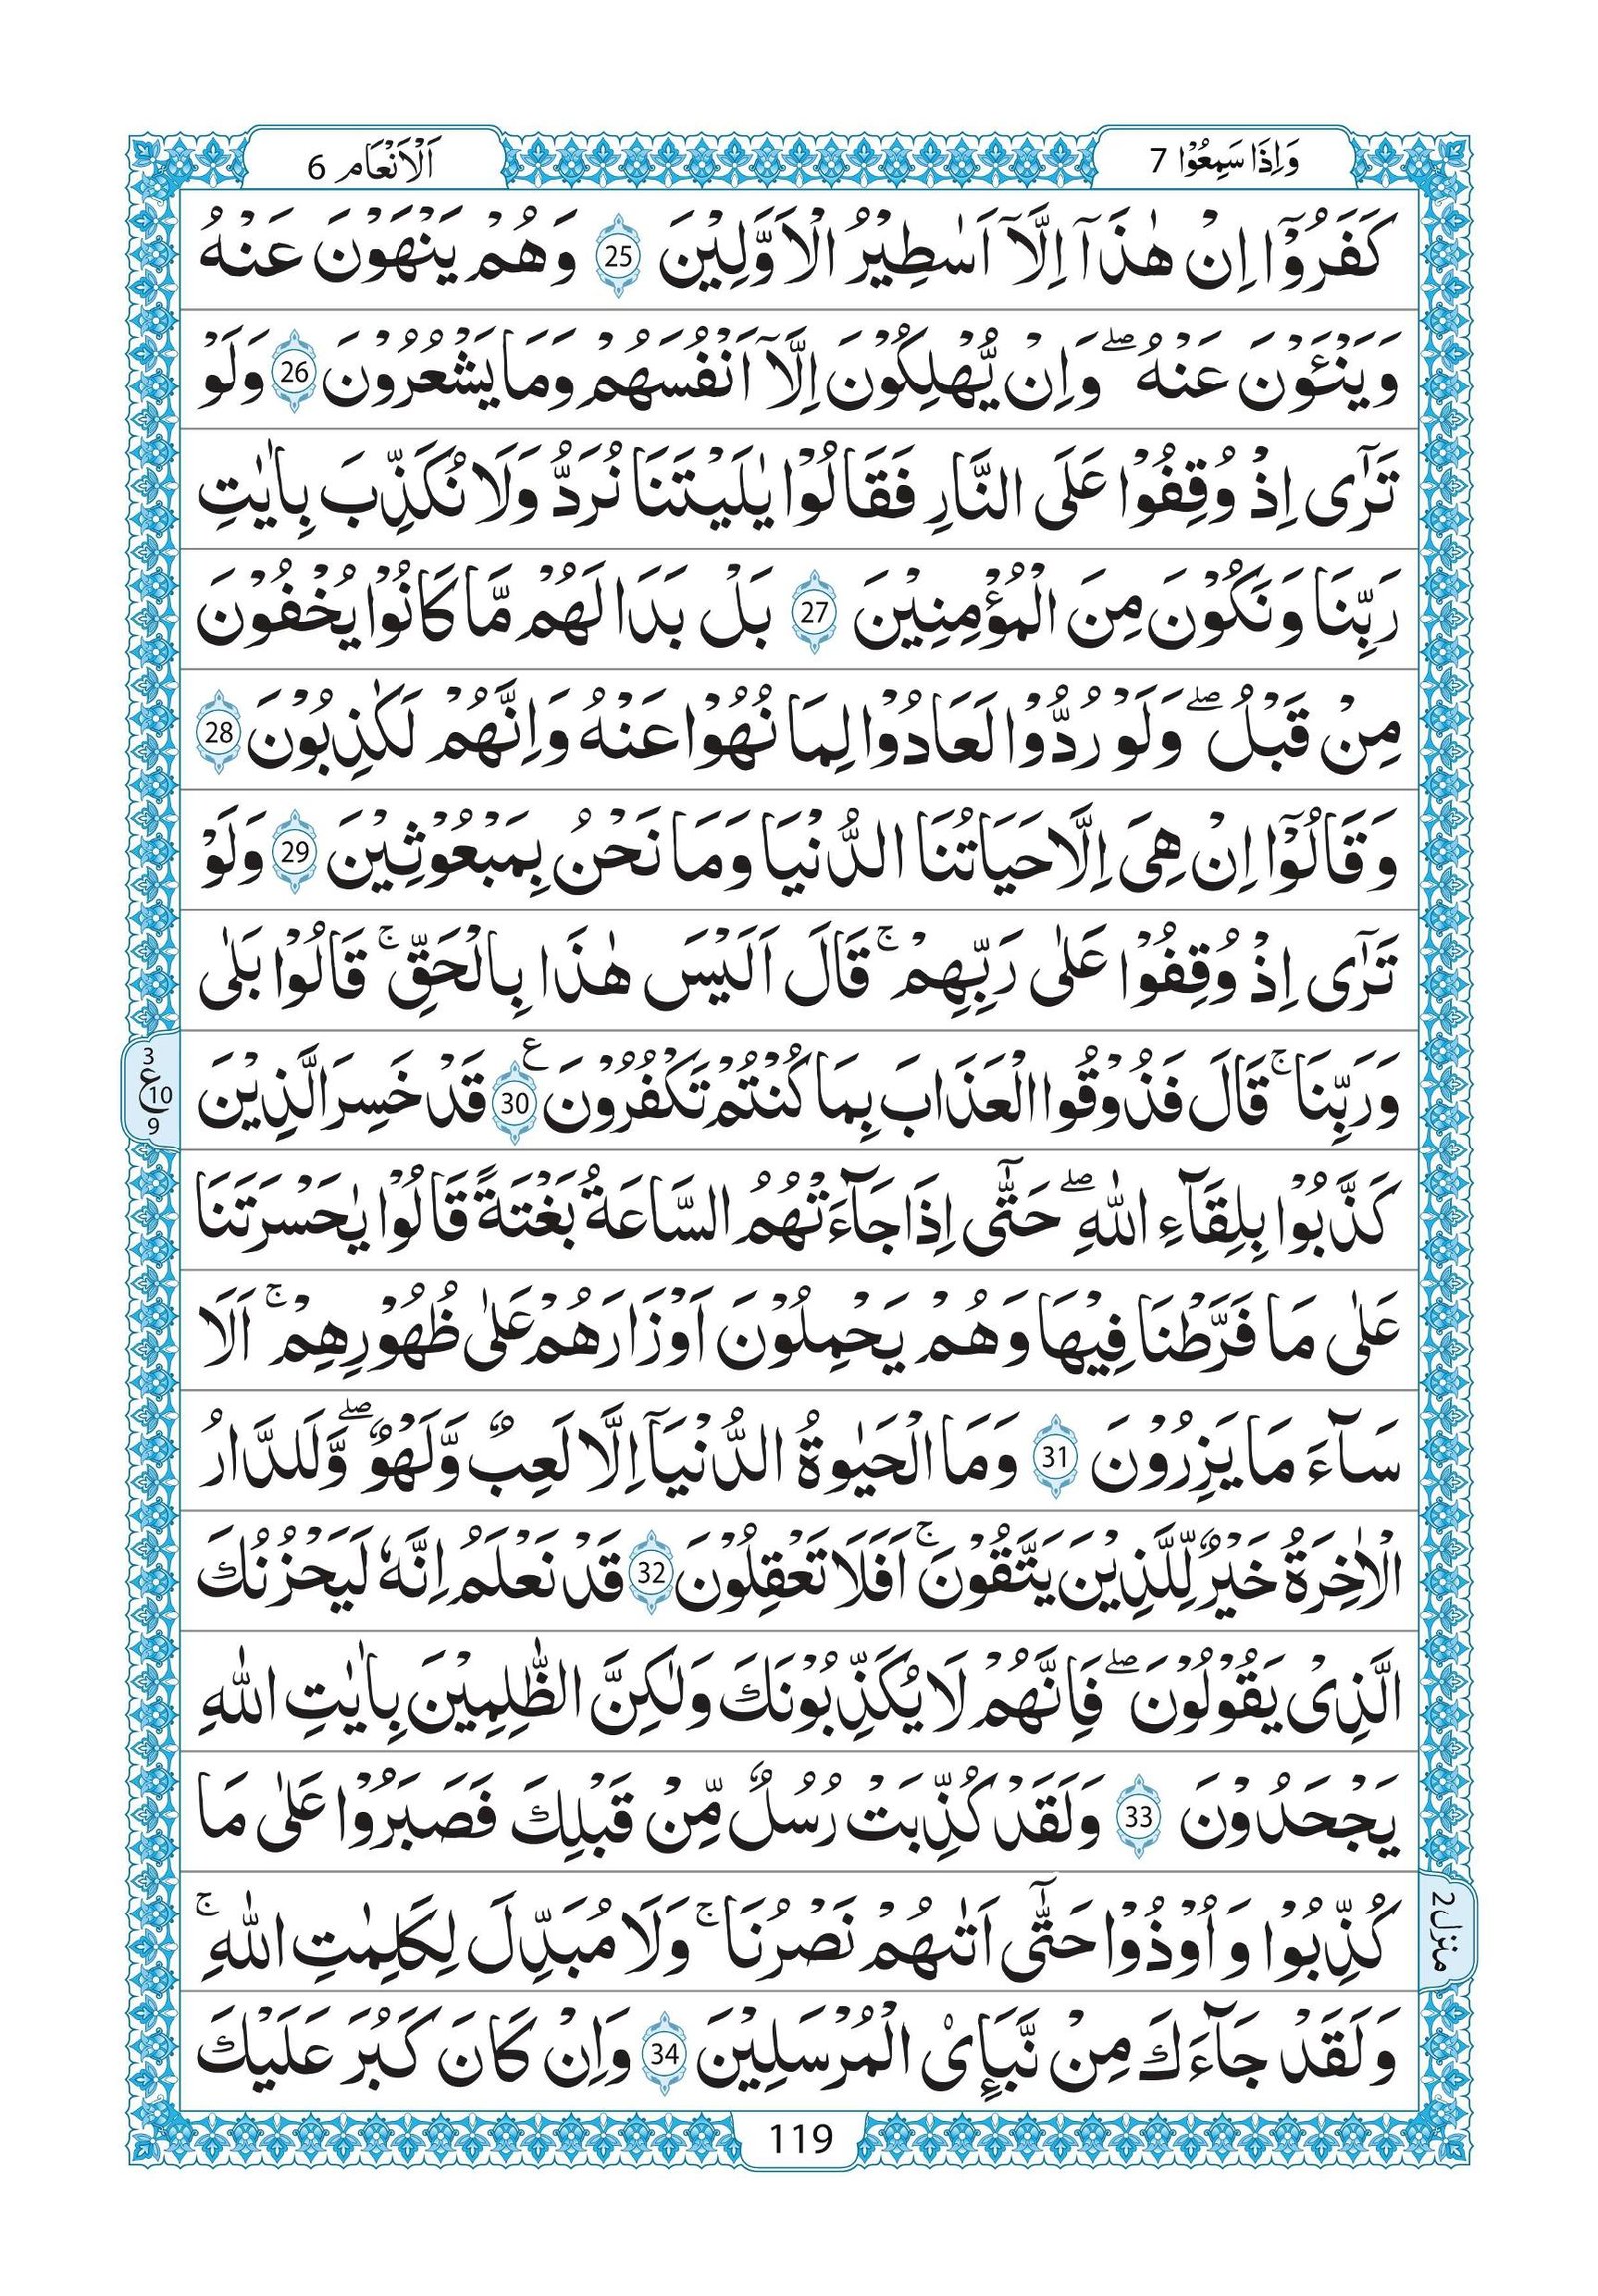 وَاِذَا سَمِعُوْا 7
اَلْاَنْعَام 6
كَفَرُوْٓا اِنْ هٰذَآ اِلَّآ اَسٰطِيْرُ الْاَوَّلِيْنَ 25 وَهُمْ يَنْهَوْنَ عَنْهُ
وَيَنْـَٔوْنَ عَنْهُ ۖ وَاِنْ يُّهْلِكُوْنَ اِلَّآ اَنْفُسَهُمْ وَمَا يَشْعُرُوْنَ 26 وَلَوْ
تَرٰٓى اِذْ وُقِفُوْا عَلَى النَّارِ فَقَالُوْا يٰلَيْتَنَا نُرَدُّ وَلَا نُكَذِّبَ بِاٰيٰتِ
رَبِّنَا وَنَكُوْنَ مِنَ الْمُؤْمِنِيْنَ 27 بَلْ بَدَا لَهُمْ مَّا كَانُوْا يُخْفُوْنَ
مِنْ قَبْلُ ۖ وَلَوْ رُدُّوْا لَعَادُوْا لِمَا نُهُوْا عَنْهُ وَاِنَّهُمْ لَكٰذِبُوْنَ 28
وَقَالُوْٓا اِنْ هِىَ اِلَّا حَيَاتُنَا الدُّنْيَا وَمَا نَحْنُ بِمَبْعُوْثِيْنَ 29 وَلَوْ
تَرٰٓى اِذْ وُقِفُوْا عَلٰى رَبِّهِمْ ۚ قَالَ اَلَيْسَ هٰذَا بِالْحَقِّ ۚ قَالُوْا بَلٰى
وَرَبِّنَا ۚ قَالَ فَذُوْقُوا الْعَذَابَ بِمَا كُنْتُمْ تَكْفُرُوْنَ 30 ع قَدْ خَسِرَ الَّذِيْنَ
3 ع 10 9
كَذَّبُوْا بِلِقَآءِ اللّٰهِ ۖ حَتّٰٓى اِذَا جَآءَتْهُمُ السَّاعَةُ بَغْتَةً قَالُوْا يٰحَسْرَتَنَا
عَلٰى مَا فَرَّطْنَا فِيْهَا وَهُمْ يَحْمِلُوْنَ اَوْزَارَهُمْ عَلٰى ظُهُوْرِهِمْ ۚ اَلَا
سَآءَ مَا يَزِرُوْنَ 31 وَمَا الْحَيٰوةُ الدُّنْيَآ اِلَّا لَعِبٌ وَّلَهْوٌ ۖ وَّلَلدَّارُ
الْاٰخِرَةُ خَيْرٌ لِّلَّذِيْنَ يَتَّقُوْنَ ۚ اَفَلَا تَعْقِلُوْنَ 32 قَدْ نَعْلَمُ اِنَّهٗ لَيَحْزُنُكَ
الَّذِىْ يَقُوْلُوْنَ ۖ فَاِنَّهُمْ لَا يُكَذِّبُوْنَكَ وَلٰكِنَّ الظّٰلِمِيْنَ بِاٰيٰتِ اللّٰهِ
يَجْحَدُوْنَ 33 وَلَقَدْ كُذِّبَتْ رُسُلٌ مِّنْ قَبْلِكَ فَصَبَرُوْا عَلٰى مَا
كُذِّبُوْا وَاُوْذُوْا حَتّٰٓى اَتٰىهُمْ نَصْرُنَا ۚ وَلَا مُبَدِّلَ لِكَلِمٰتِ اللّٰهِ ۚ
منزل 2
وَلَقَدْ جَآءَكَ مِنْ نَّبَإِى۟ الْمُرْسَلِيْنَ 34 وَاِنْ كَانَ كَبُرَ عَلَيْكَ
119